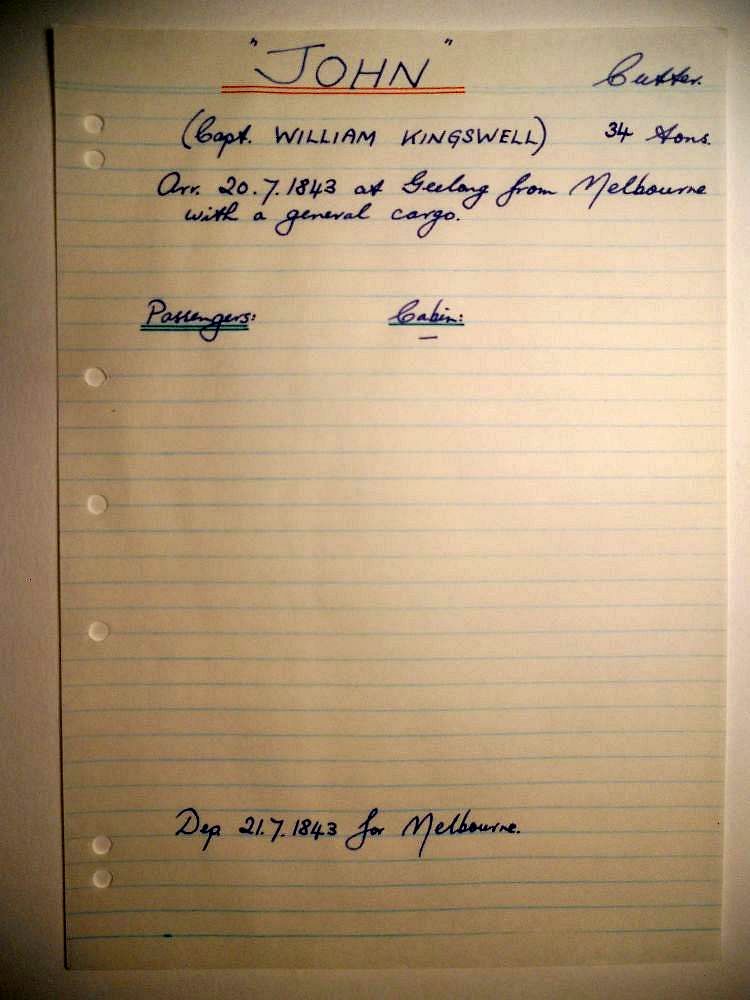 "JOHN" Cutter.
(Capt. WILLIAM KINGSWELL) 34 tons.
Arr. 20.7.1843 at Geelong from Melbourne
with a general cargo.
Passengers: Cabin:
—
Dep 21.7.1843 for Melbourne.